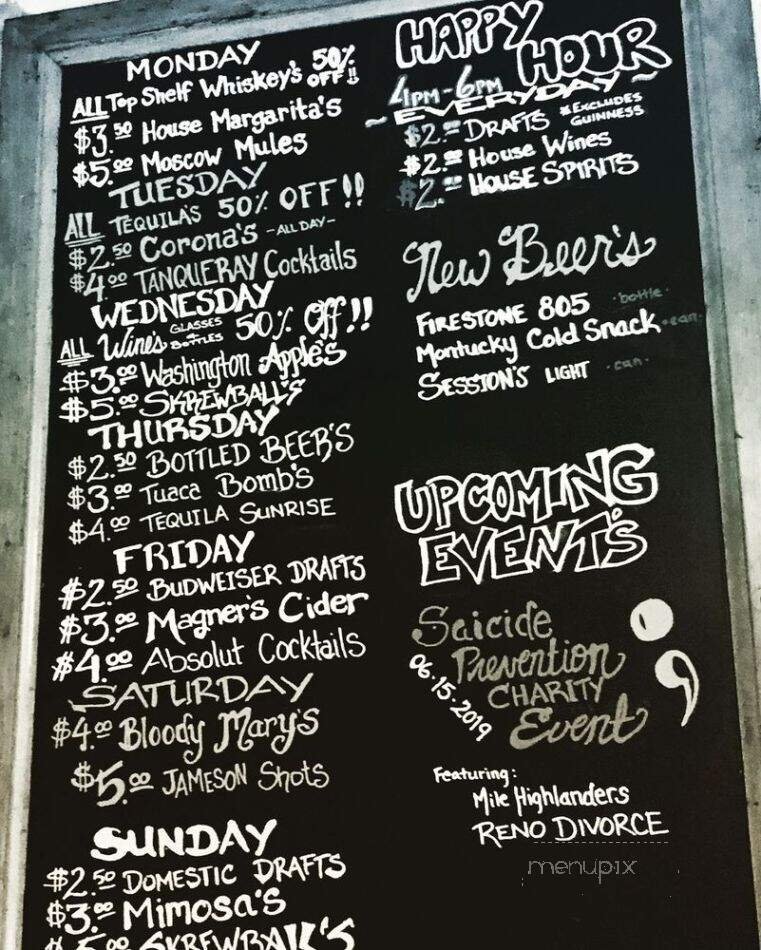 MONDAY
ALL Top Shelf Whiskey's 50% OFF!!
$3.50 House Margarita's
$5.00 Moscow Mules
TUESDAY
ALL TEQUILA'S 50% OFF!!
$2.50 Corona's -ALL DAY-
$4.00 TANQUERAY Cocktails
WEDNESDAY
ALL Wine's GLASSES + BOTTLES 50% Off!!
$3.00 Washington Apple's
$5.00 SKREWBALL'S
THURSDAY
$2.50 BOTTLED BEER'S
$3.00 Tuaca Bomb's
$4.00 TEQUILA SUNRISE
FRIDAY
$2.50 BUDWEISER DRAFTS
$3.00 Magner's Cider
$4.00 Absolut Cocktails
SATURDAY
$4.00 Bloody Mary's
$5.00 JAMESON Shots
SUNDAY
$2.50 DOMESTIC DRAFTS
$3.00 Mimosa's
$5.00 SKREWBALL'S
HAPPY HOUR
4PM-6PM
~ EVERYDAY ~
$2.00 DRAFTS *EXCLUDES GUINNESS
$2.00 House Wines
$2.00 HOUSE SPIRITS
New Beer's
FIRESTONE 805 ·bottle·
Montucky Cold Snack ·can·
SESSION'S LIGHT ·can·
UPCOMING
EVENT'S
Suicide
Prevention
CHARITY
Event
06·15·2019
;
Featuring:
Mile Highlanders
RENO DIVORCE
menupix